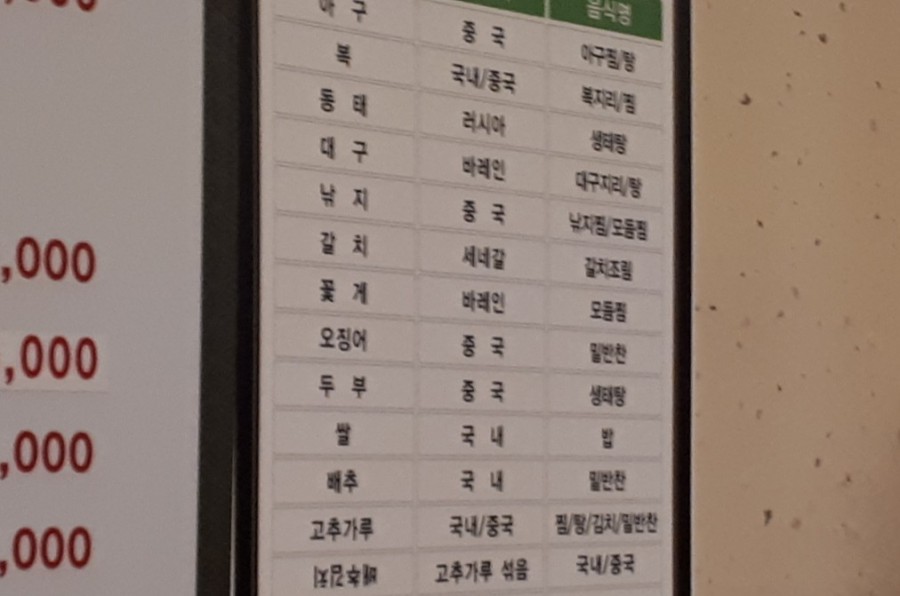 아 구 중 국 아구찜/탕
복 국내/중국 복지리/찜
동 태 러시아 생태탕
대 구 바레인 대구지리/탕
낚 지 중 국 낚지찜/모듬찜
갈 치 세네갈 갈치조림
꽃 게 바레인 모듬찜
오징어 중 국 밑반찬
두 부 중 국 생태탕
쌀 국 내 밥
배추 국 내 밑반찬
고추가루 국내/중국 찜/탕/김치/밑반찬
배추김치 고추가루 섞음 국내/중국
음식명
,000
,000
,000
,000